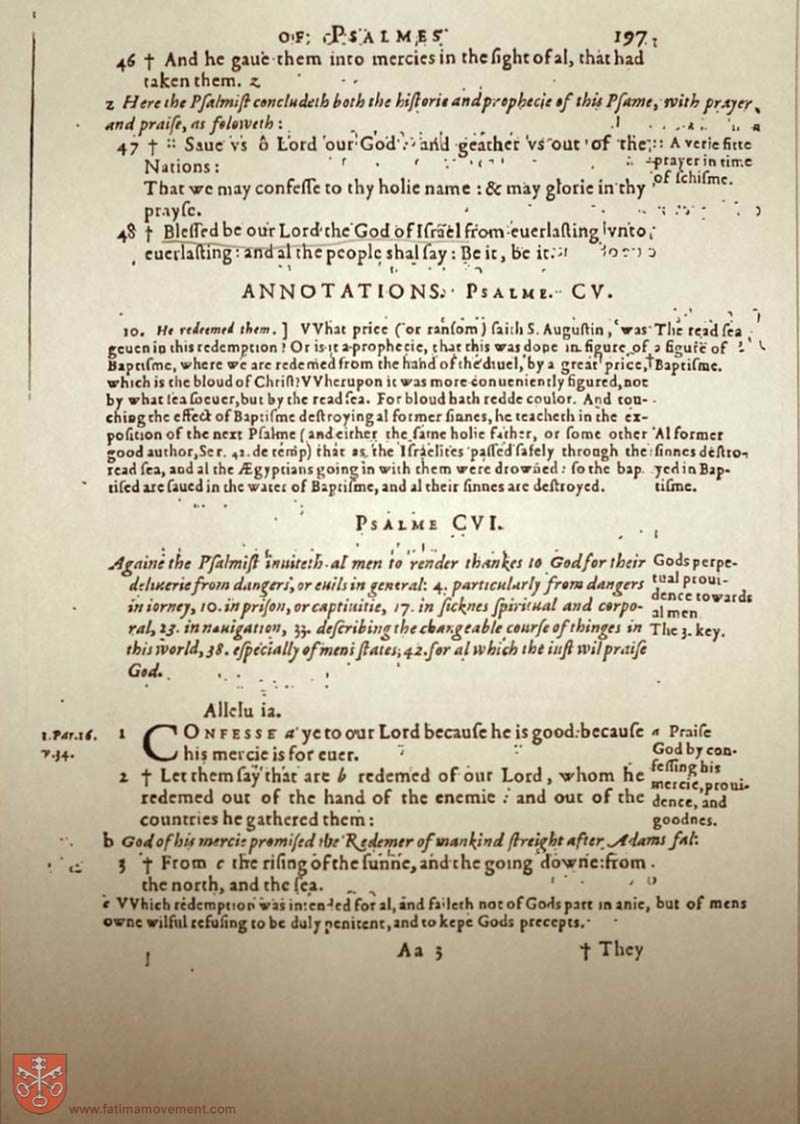 OF PSALMES 197
46 † And he gaue them into mercies in the ſight of al, that had
taken them. z
z Here the Pſalmiſt concludeth both the hiſtorie and prophecie of this Pſame, with prayer
and praiſe, as foloweth :
47 † :: Saue vs ô Lord our God : and geather vs out of the
Nations :
That we may confeſſe to thy holie name : & may glorie in thy
prayſe.
:: A verie fitte
prayer in time
of ſchiſme.
48 † Bleſſed be our Lord the God of Iſrael from euerlaſting vnto
euerlaſting : and al the people shal ſay : Be it, be it.
ANNOTATIONS. PSALME. CV.
10. He redeemed them. ] VVhat price (or ranſom) ſaith S. Auguſtin, was
geuen in this redemption ? Or is it a prophecie, that this was done in figure of
Baptiſme, where we are redeemed from the hand of the diuel, by a great price,
which is the bloud of Chriſt? VVherupon it was more conueniently figured, not
by what ſea ſoeuer, but by the read ſea. For bloud hath redde coulor. And tou-
ching the effect of Baptiſme deſtroying al former ſinnes, he teacheth in the ex-
poſition of the next Pſalme (and either the ſame holie father, or ſome other
good author, Ser. 42. de temp) that as the Iſraelites paſſed ſafely through the
read ſea, and al the Ægyptians going in with them were drowned : ſo the bap
tiſed are ſaued in the water of Baptiſme, and al their ſinnes are deſtroyed.
The read ſea
a figure of
Baptiſme.
Al former
ſinnes deſtro-
yed in Bap-
tiſme.
PSALME CVI.
Againe the Pſalmiſt inuiteth al men to render thankes to God for their
deliuerie from dangers, or euils in general: 4. particularly from dangers
in iorney, 10. in priſon, or captiuitie, 17. in ſicknes ſpiritual and corpo-
ral, 23. in nauigation, 33. deſcribing the changeable courſe of thinges in
this world, 38. eſpecially of mens ſtates; 42. for al which the iuſt wil praiſe
God.
Gods perpe-
tual proui-
dence towards
al men.
The 3. key.
Allelu ia.
1. Par. 16.
v. 34.
1 CONFESSE a ye to our Lord becauſe he is good: becauſe
his mercie is for euer.
2 † Let them ſay that are b redemed of our Lord, whom he
redemed out of the hand of the enemie : and out of the
countries he gathered them :
a Praiſe
God by con-
feſſing his
mercie, proui-
dence, and
goodnes.
b God of his mercie promiſed the Redemer of mankind ſtreight after Adams fal.
3 † From c the riſing of the ſunne, and the going downe: from
the north, and the ſea.
c VVhich redemption was intended for al, and faileth not of Gods part in anie, but of mens
owne wilful refuſing to be duly penitent, and to kepe Gods precepts.
Aa 3 † They
www.fatimamovement.com